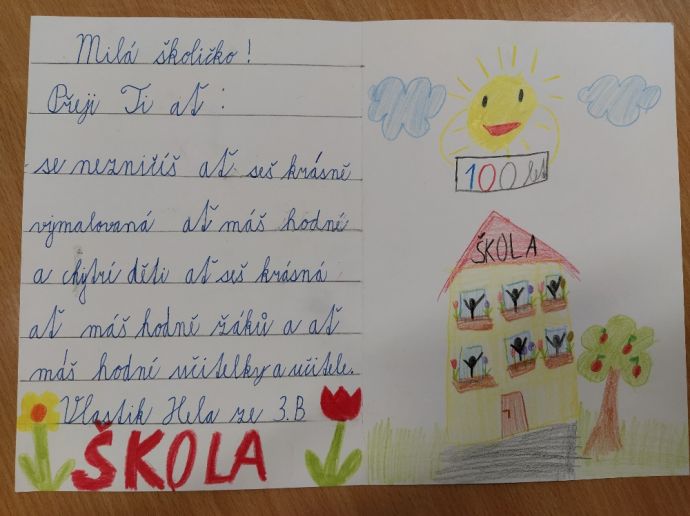 Milá školičko!
Přeji Ti ať:
se nezničíš ať seš krásně
vymalovaná ať máš hodné
a chytrí děti ať seš krásná
ať máš hodně žáků a ať
máš hodné učitelky a učitele.
Vlastik Hela ze 3.B
ŠKOLA
100 let
ŠKOLA